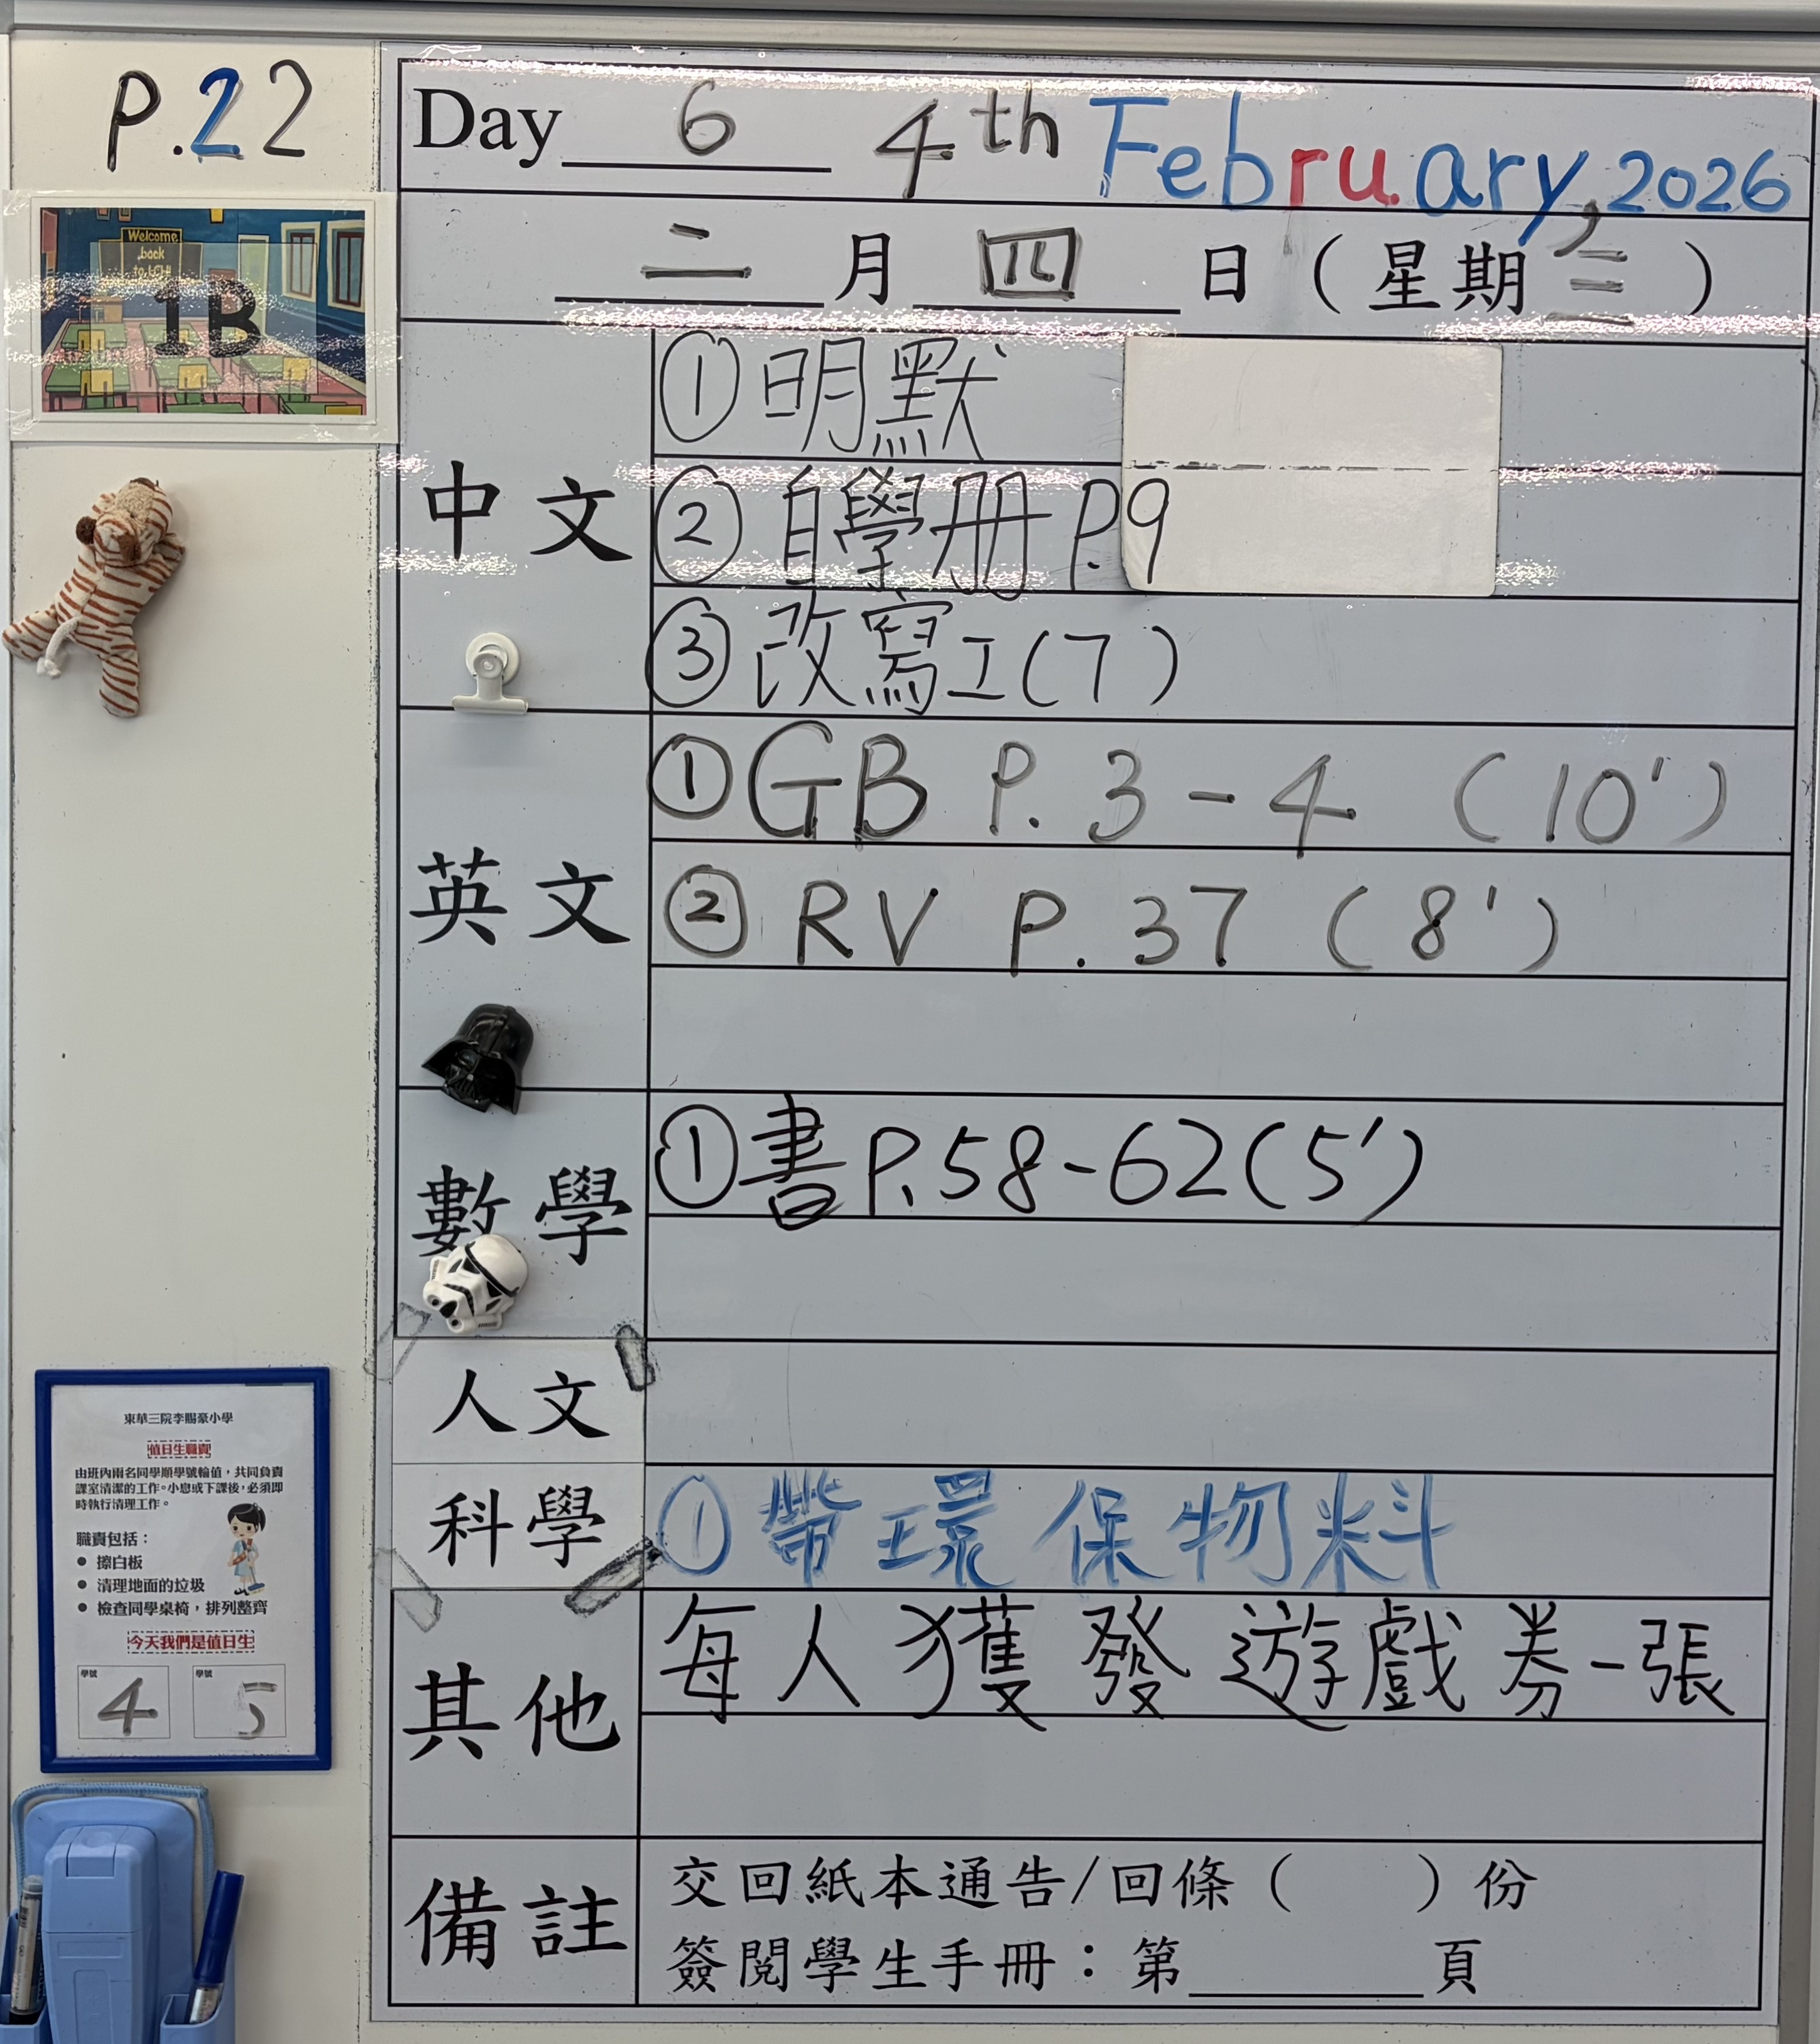 P.22
Day 6 4th February, 2026
二月四日(星期三)
Welcome
back
to LCH!
1B
中文
①明默
②自學册 P.9
③改寫工(7)
英文
①GB P. 3-4 (10')
②RV P. 37 (8')
數學
①書P.58-62(5')
人文
科學
①帶環保物料
其他
每人獲發遊戲券一張
備註
交回紙本通告/回條( )份
簽閱學生手冊:第 頁
東華三院李賜豪小學
值日生職責
由班內兩名同學順學號輪值,共同負責
課室清潔的工作。小息或下課後,必須即
時執行清理工作。
職責包括:
● 擦白板
● 清理地面的垃圾
● 檢查同學桌椅,排列整齊
今天我們是值日生
學號 學號
4 5